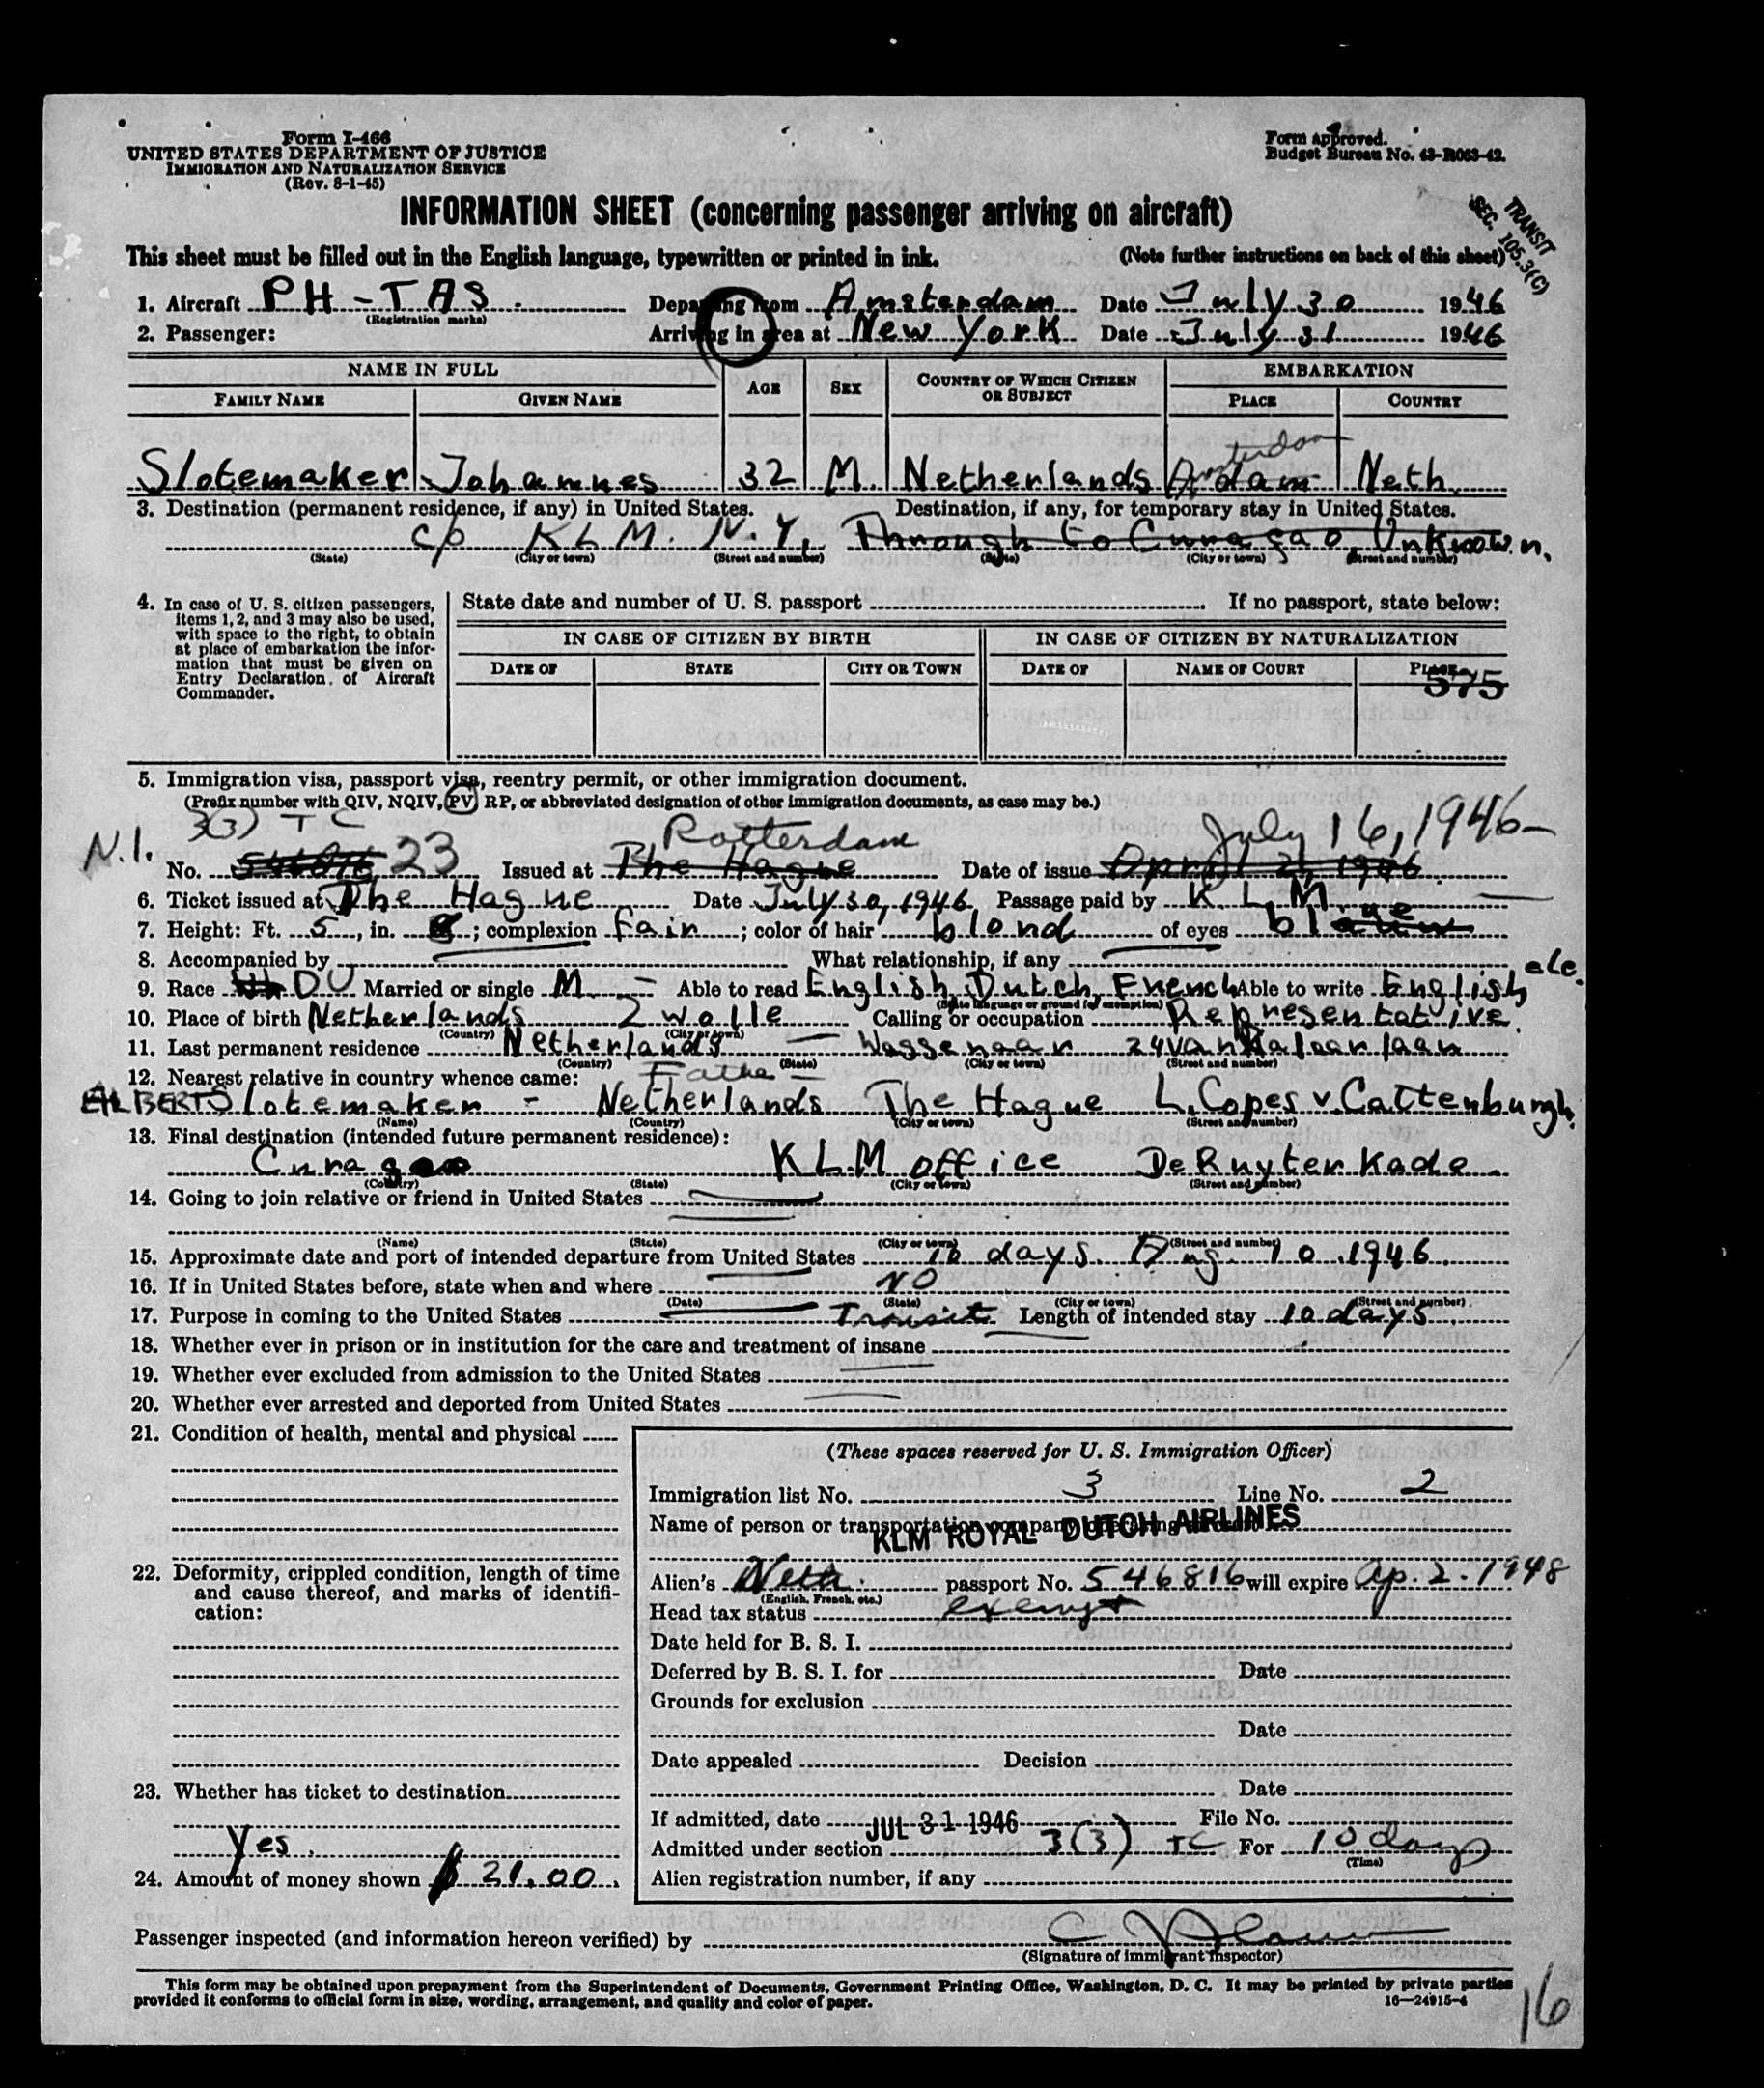 Form I-466
UNITED STATES DEPARTMENT OF JUSTICE
IMMIGRATION AND NATURALIZATION SERVICE
(Rev. 8-1-45)
Form approved.
Budget Bureau No. 43-R063-42.
TRANSIT
SEC. 105.3(C)
INFORMATION SHEET (concerning passenger arriving on aircraft)
This sheet must be filled out in the English language, typewritten or printed in ink. (Note further instructions on back of this sheet)
1. Aircraft PH-TAS. Departing from Amsterdam Date July 30 1946
(Registration marks)
2. Passenger: Arriving in area at New York Date July 31 1946
NAME IN FULL AGE SEX COUNTRY OF WHICH CITIZEN OR SUBJECT EMBARKATION
FAMILY NAME GIVEN NAME PLACE COUNTRY
Slotemaker Johannes 32 M. Netherlands A'dam Neth.
3. Destination (permanent residence, if any) in United States. Destination, if any, for temporary stay in United States.
c/o KLM. N.Y. Through to Curaçao, Unknown.
(State) (City or town) (Street and number) (State) (City or town) (Street and number)
4. In case of U. S. citizen passengers, items 1, 2, and 3 may also be used, with space to the right, to obtain at place of embarkation the information that must be given on Entry Declaration of Aircraft Commander.
State date and number of U. S. passport If no passport, state below:
IN CASE OF CITIZEN BY BIRTH IN CASE OF CITIZEN BY NATURALIZATION
DATE OF STATE CITY OR TOWN DATE OF NAME OF COURT PLACE
575
5. Immigration visa, passport visa, reentry permit, or other immigration document.
(Prefix number with QIV, NQIV, PV, RP, or abbreviated designation of other immigration documents, as case may be.)
3(3) TC Rotterdam July 16, 1946
N.I. No. 546816 23 Issued at The Hague Date of issue April 2, 1946
6. Ticket issued at The Hague Date July 30, 1946 Passage paid by K. L. M.
7. Height: Ft. 5, in. 8; complexion fair; color of hair blond of eyes blue
8. Accompanied by What relationship, if any
9. Race DU Married or single M. Able to read English, Dutch, French Able to write English etc.
(State language or ground for exemption)
10. Place of birth Netherlands Zwolle Calling or occupation Representative.
(Country) (City or town)
11. Last permanent residence Netherlands Wassenaar 24 van
(Country) (State) (City or town) (Street and number)
12. Nearest relative in country whence came: Father
ALBERT Slotemaker - Netherlands The Hague L. Copes v. Cattenburgh.
(Name) (Country) (City or town) (Street and number)
13. Final destination (intended future permanent residence):
Curaçao KLM office De Ruyter Kade.
(Country) (State) (City or town) (Street and number)
14. Going to join relative or friend in United States
(Name) (State) (City or town) (Street and number)
15. Approximate date and port of intended departure from United States 10 days. Aug. 10. 1946.
16. If in United States before, state when and where NO
(Date) (State) (City or town) (Street and number)
17. Purpose in coming to the United States Transit Length of intended stay 10 days
18. Whether ever in prison or in institution for the care and treatment of insane
19. Whether ever excluded from admission to the United States
20. Whether ever arrested and deported from United States
21. Condition of health, mental and physical
22. Deformity, crippled condition, length of time and cause thereof, and marks of identification:
23. Whether has ticket to destination
Yes.
24. Amount of money shown $ 21.00.
(These spaces reserved for U. S. Immigration Officer)
Immigration list No. 3 Line No. 2
Name of person or transportation company operating aircraft
KLM ROYAL DUTCH AIRLINES
Alien's Neth. passport No. 546816 will expire Ap. 2. 1948
(English, French, etc.)
Head tax status exempt
Date held for B. S. I.
Deferred by B. S. I. for Date
Grounds for exclusion
Date
Date appealed Decision
Date
If admitted, date JUL 31 1946 File No.
Admitted under section 3(3) TC For 10 days
(Time)
Alien registration number, if any
Passenger inspected (and information hereon verified) by
(Signature of immigrant inspector)
This form may be obtained upon prepayment from the Superintendent of Documents, Government Printing Office, Washington, D. C. It may be printed by private parties
provided it conforms to official form in size, wording, arrangement, and quality and color of paper. 16—24915-4
16